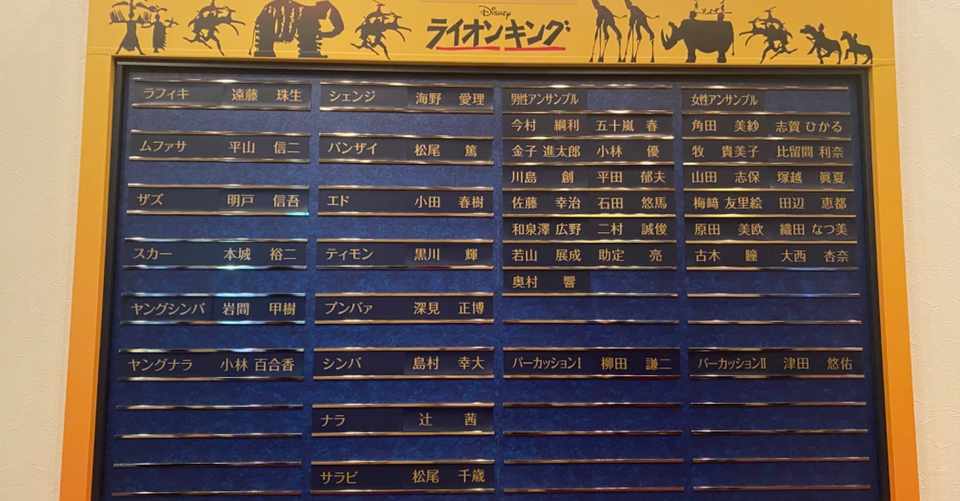 Disney
ライオンキング
ラフィキ 遠藤 珠生
ムファサ 平山 信二
ザズ 明戸 信吾
スカー 本城 裕二
ヤングシンバ 岩間 甲樹
ヤングナラ 小林 百合香
シェンジ 海野 愛理
バンザイ 松尾 篤
エド 小田 春樹
ティモン 黒川 輝
プンバァ 深見 正博
シンバ 島村 幸大
ナラ 辻 茜
サラビ 松尾 千歳
男性アンサンブル
今村 綱利 五十嵐 春
金子 進太郎 小林 優
川島 創 平田 郁夫
佐藤 幸治 石田 悠馬
和泉澤 広野 二村 誠俊
若山 展成 助定 亮
奥村 響
パーカッションⅠ 柳田 謙二
女性アンサンブル
角田 美紗 志賀 ひかる
牧 貴美子 比留間 利奈
山田 志保 塚越 眞夏
梅﨑 友里絵 田辺 恵都
原田 美欧 織田 なつ美
古木 瞳 大西 杏奈
パーカッションⅡ 津田 悠佑